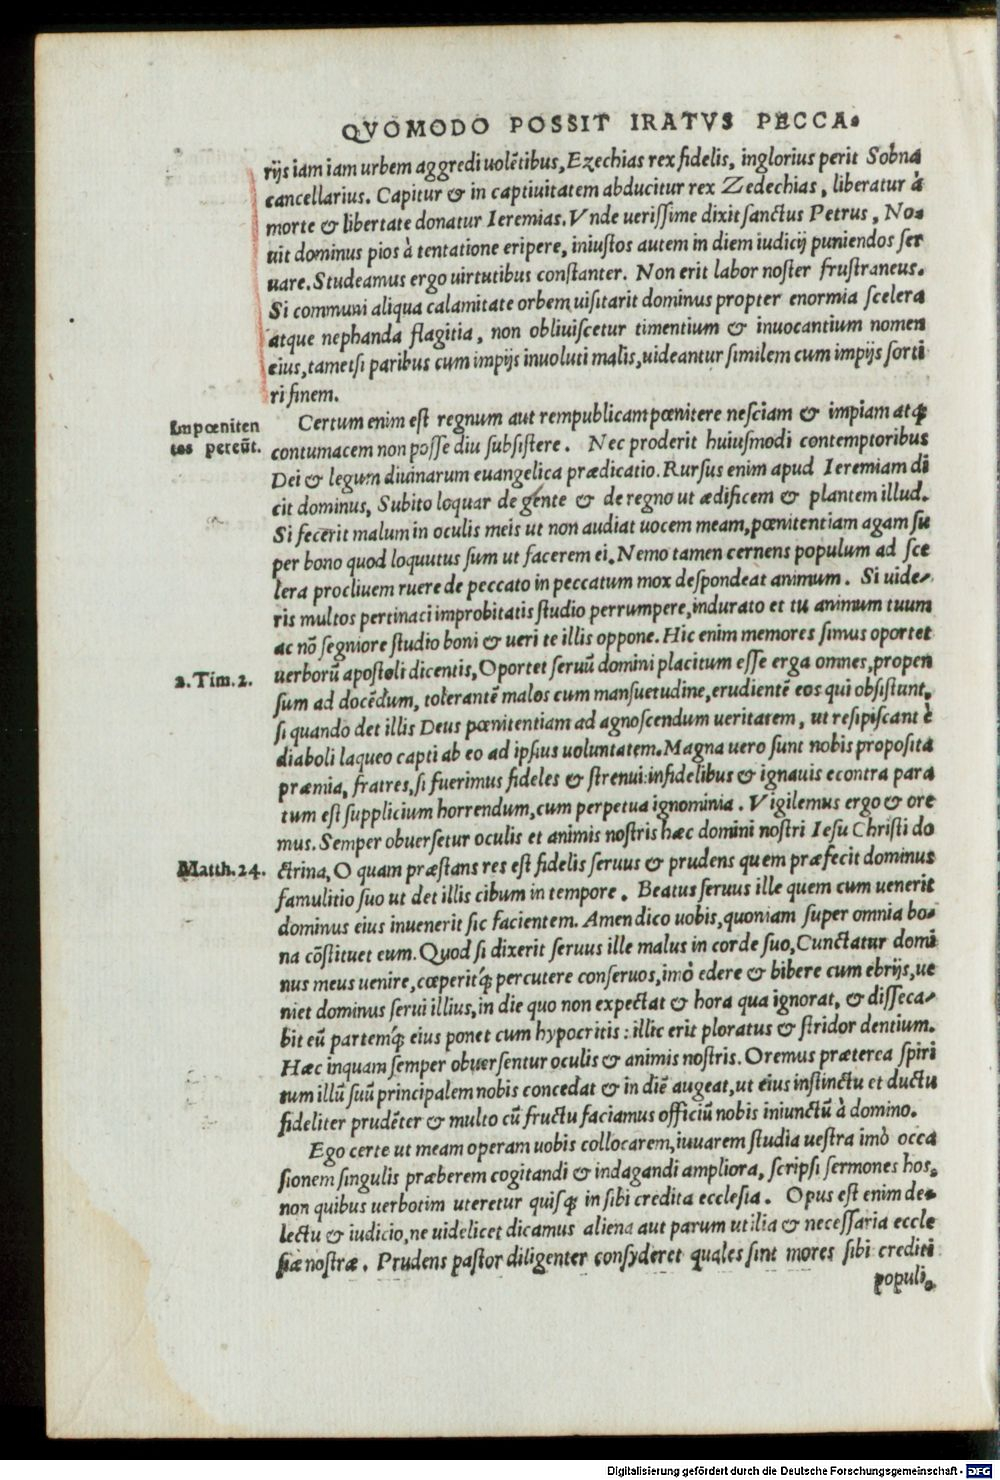 QVOMODO POSSIT IRATVS PECCA-
rijs iam iam urbem aggredi uolẽtibus, Ezechias rex fidelis, inglorius perit Sobna
cancellarius. Capitur & in captiuitatem abducitur rex Zedechias, liberatur à
morte & libertate donatur Ieremias. Vnde uerissime dixit sanctus Petrus, No-
uit dominus pios à tentatione eripere, iniustos autem in diem iudicij puniendos ser
uare. Studeamus ergo uirtutibus constanter. Non erit labor noster frustraneus.
Si communi aliqua calamitate orbem uisitarit dominus propter enormia scelera
atque nephanda flagitia, non obliuiscetur timentium & inuocantium nomen
eius, tametsi paribus cum impijs inuoluti malis, uideantur similem cum impijs sorti
ri finem.
Certum enim est regnum aut rempublicam pœnitere nesciam & impiam atq;
Impœniten
tes pereũt.
contumacem non posse diu subsistere. Nec proderit huiusmodi contemptoribus
Dei & legum diuinarum euangelica prædicatio. Rursus enim apud Ieremiam di
cit dominus, Subito loquar de gente & de regno ut ædificem & plantem illud.
Si fecerit malum in oculis meis ut non audiat uocem meam, pœnitentiam agam su
per bono quod loquutus sum ut facerem ei. Nemo tamen cernens populum ad sce
lera procliuem ruere de peccato in peccatum mox despondeat animum. Si uide-
ris multos pertinaci improbitatis studio perrumpere, indurato et tu animum tuum
ac nõ segniore studio boni & ueri te illis oppone. Hic enim memores simus oportet
uerborũ apostoli dicentis, Oportet seruũ domini placitum esse erga omnes, propen
2. Tim. 2.
sum ad docẽdum, tolerantẽ malos cum mansuetudine, erudientẽ eos qui obsistunt,
si quando det illis Deus pœnitentiam ad agnoscendum ueritatem, ut resipiscant è
diaboli laqueo capti ab eo ad ipsius uoluntatem. Magna uero sunt nobis proposita
præmia, fratres, si fuerimus fideles & strenui: infidelibus & ignauis econtra para
tum est supplicium horrendum, cum perpetua ignominia. Vigilemus ergo & ore
mus. Semper obuersetur oculis et animis nostris hæc domini nostri Iesu Christi do
Matth. 24.
ctrina, O quam præstans res est fidelis seruus & prudens quem præfecit dominus
famulitio suo ut det illis cibum in tempore. Beatus seruus ille quem cum uenerit
dominus eius inuenerit sic facientem. Amen dico uobis, quoniam super omnia bo-
na cõstituet eum. Quod si dixerit seruus ille malus in corde suo, Cunctatur domi
nus meus uenire, cœperitq́; percutere conseruos, imò edere & bibere cum ebrijs, ue
niet dominus serui illius, in die quo non expectat & hora qua ignorat, & disseca-
bit eũ partemq́; eius ponet cum hypocritis: illic erit ploratus & stridor dentium.
Hæc inquam semper obuersentur oculis & animis nostris. Oremus præterea spiri
tum illũ suũ principalem nobis concedat & in diẽ augeat, ut eius instinctu et ductu
fideliter prudẽter & multo cũ fructu faciamus officiũ nobis iniunctũ à domino.
Ego certe ut meam operam uobis collocarem, iuuarem studia uestra imò occa
sionem singulis præberem cogitandi & indagandi ampliora, scripsi sermones hos,
non quibus uerbotim uteretur quisq; in sibi credita ecclesia. Opus est enim de-
lectu & iudicio, ne uidelicet dicamus aliena aut parum utilia & necessaria eccle
siæ nostræ. Prudens pastor diligenter consyderet quales sint mores sibi crediti
populi,
Digitalisierung gefördert durch die Deutsche Forschungsgemeinschaft - DFG